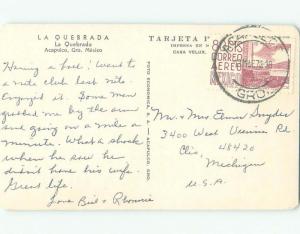 LA QUEBRADA
La Quebrada
Acapulco, Gro. México
TARJETA P
IMPRESA EN M
CASA VELUX,
FOTO ECONOMICA, S. A. - ACAPULCO, GRO.
CORREO
AEREO
MEXICO
GRO.
Having a ball! Went to
a nite club last nite.
Enjoyed it. Some man
grabbed me by the arm
and going on a mile a
minute. What a shock
when he saw he
didn't have his wife.
Great life.
Love Bill & Rhonnie
Mr. & Mrs Elman Snyder
3400 West Vienna Rd
Clio, 48420
Michigan
U.S.A.